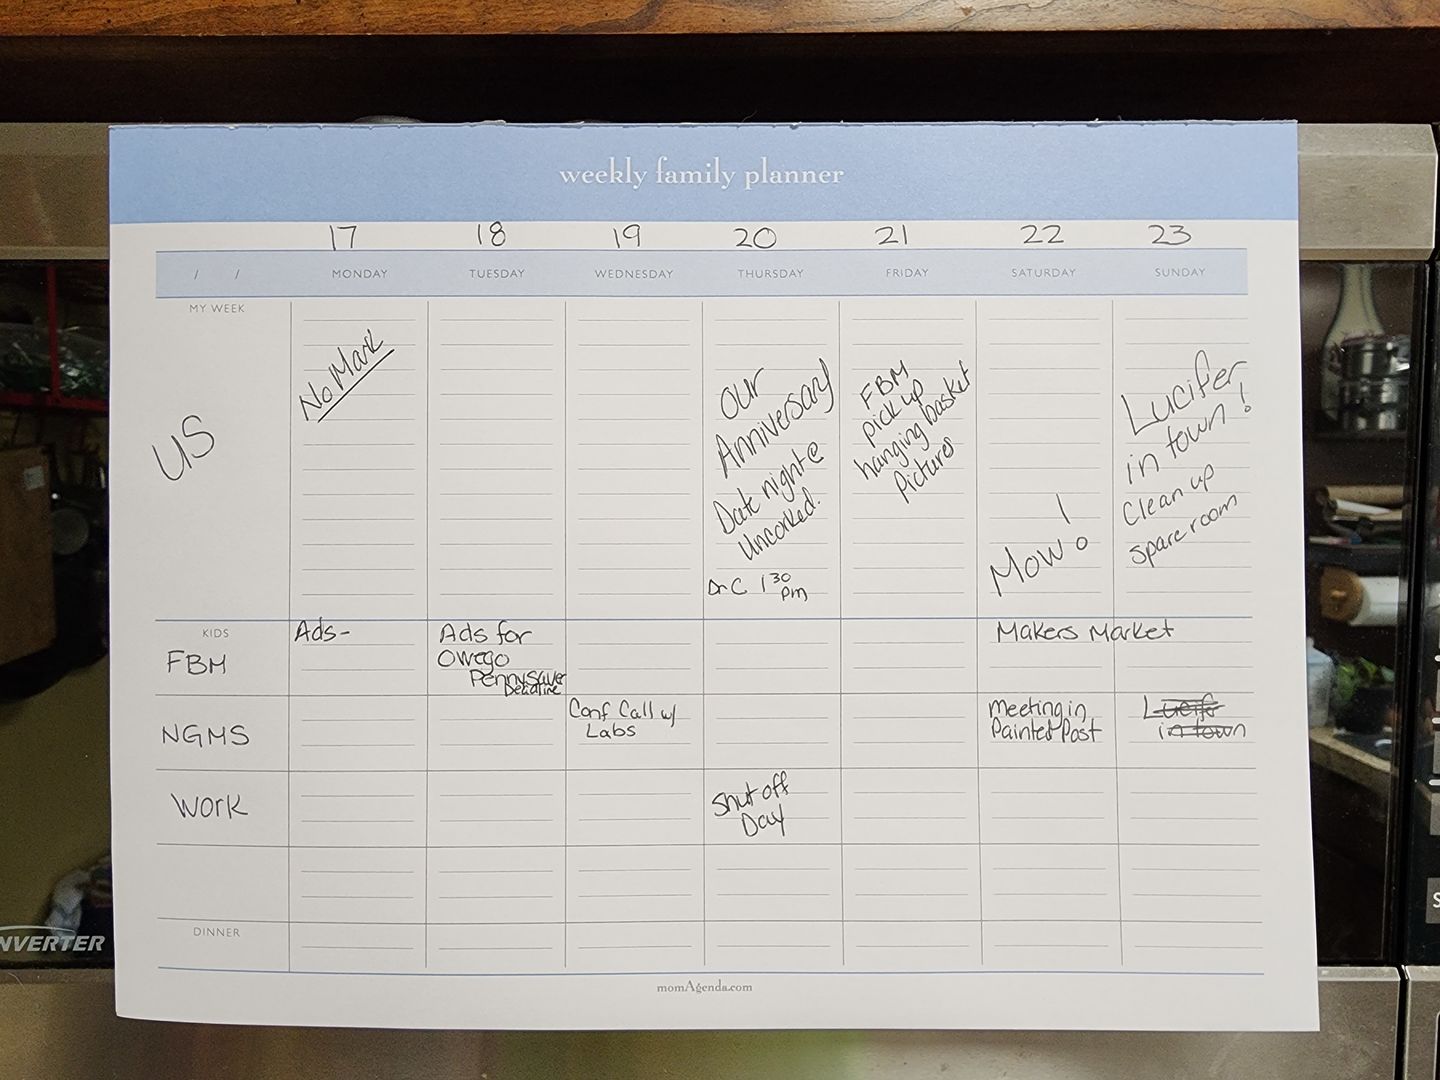 weekly family planner
17 18 19 20 21 22 23
/ / MONDAY TUESDAY WEDNESDAY THURSDAY FRIDAY SATURDAY SUNDAY
MY WEEK
US
No Mark
Our
Anniversary
Date night @
Uncorked.
Dr C 1 30
pm
FBM
pick up
hanging basket
Pictures
Mow!
Lucifer
in town!
Clean up
spare room
KIDS
FBM
Ads-
Ads for
Owego
Pennysaver
Deadline
Makers Market
NGMS
Conf Call w/
Labs
meeting in
Painted Post
Lucifer
in town
Work
Shut off
Day
DINNER
momAgenda.com
NVERTER
S